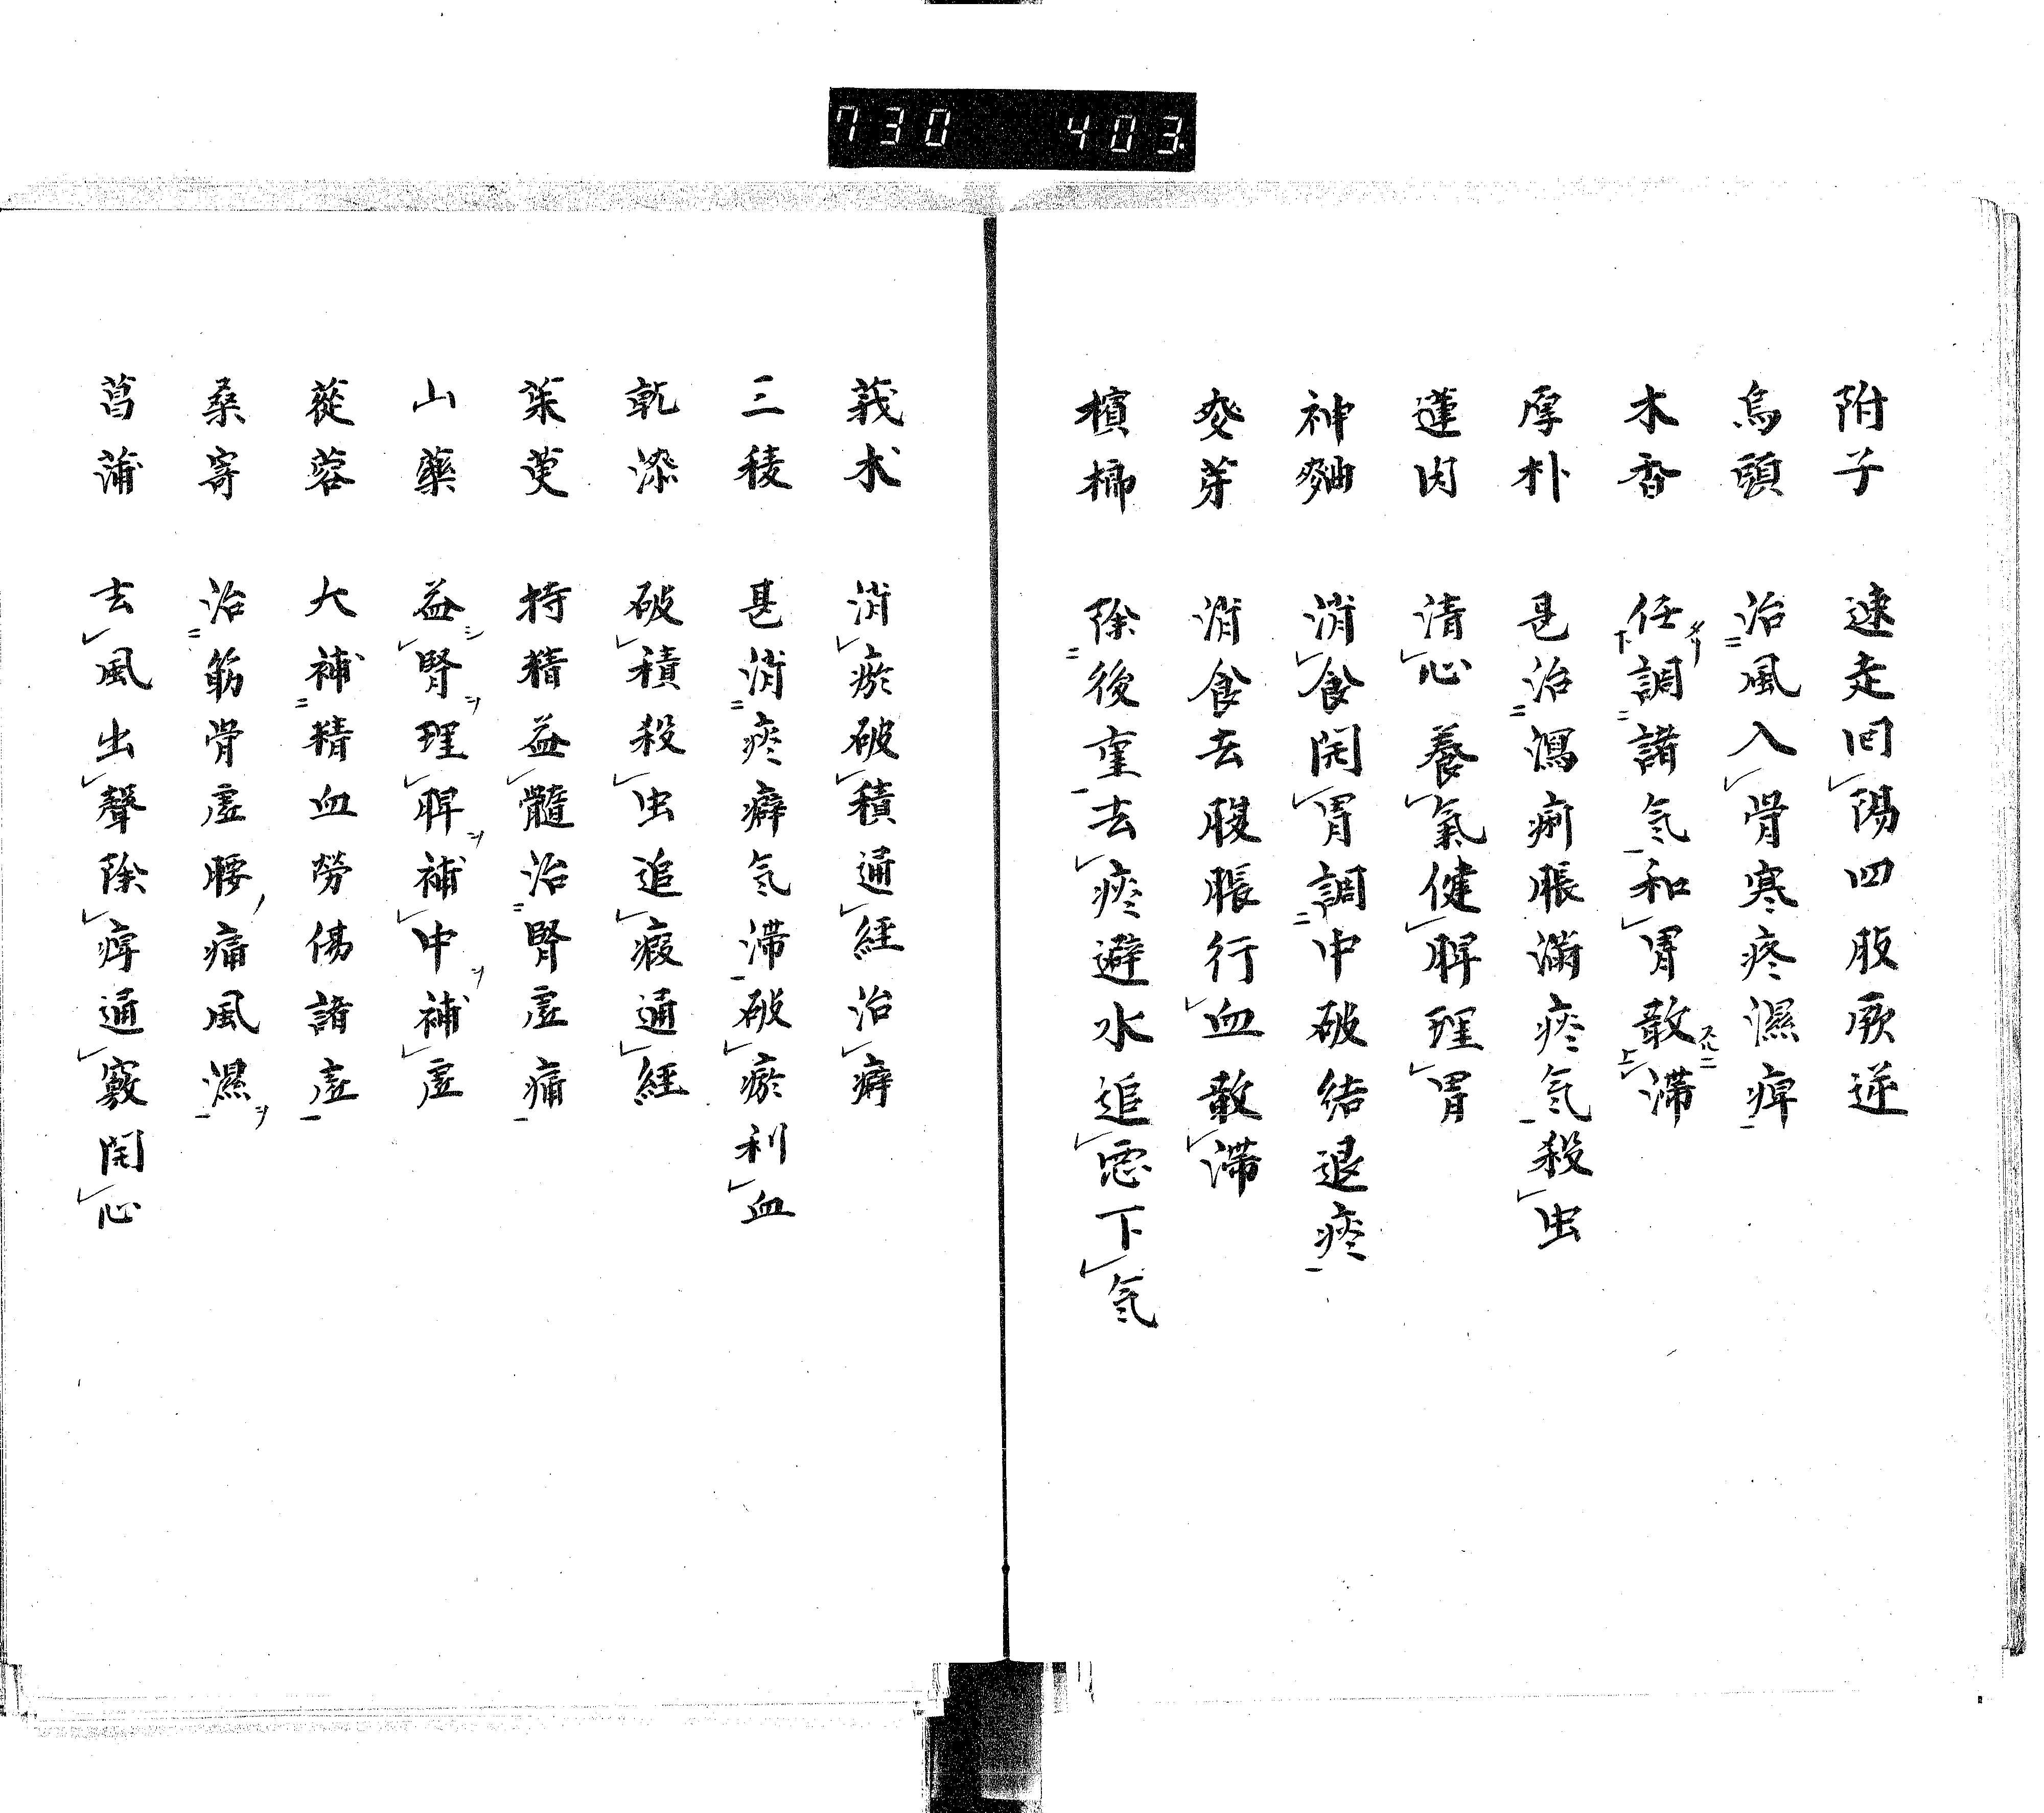 730 403
附子 速走回陽四肢厥逆
烏頭 治風入骨寒疼濕痺
木香 任調諸氣和胃散滯
厚朴 甚治瀉痢脹滿痰氣殺虫
蓮肉 清心養氣健脾理胃
神麯 消食開胃調中破結退痰
麥芽 消食去腹脹行血散滯
檳榔 除後重去痰避水追悪下氣
莪朮 消瘀破積通経治癖
三稜 甚消痰癖気滞破瘀利血
乾漆 破積殺虫追瘕通経
茱萸 持精益髓治腎虚痛
山藥 益腎理脾補中補虚
蓯蓉 大補精血勞傷諸虚
桑寄 治筋骨虚腰痛風濕
菖蒲 去風出聲除痺通竅開心